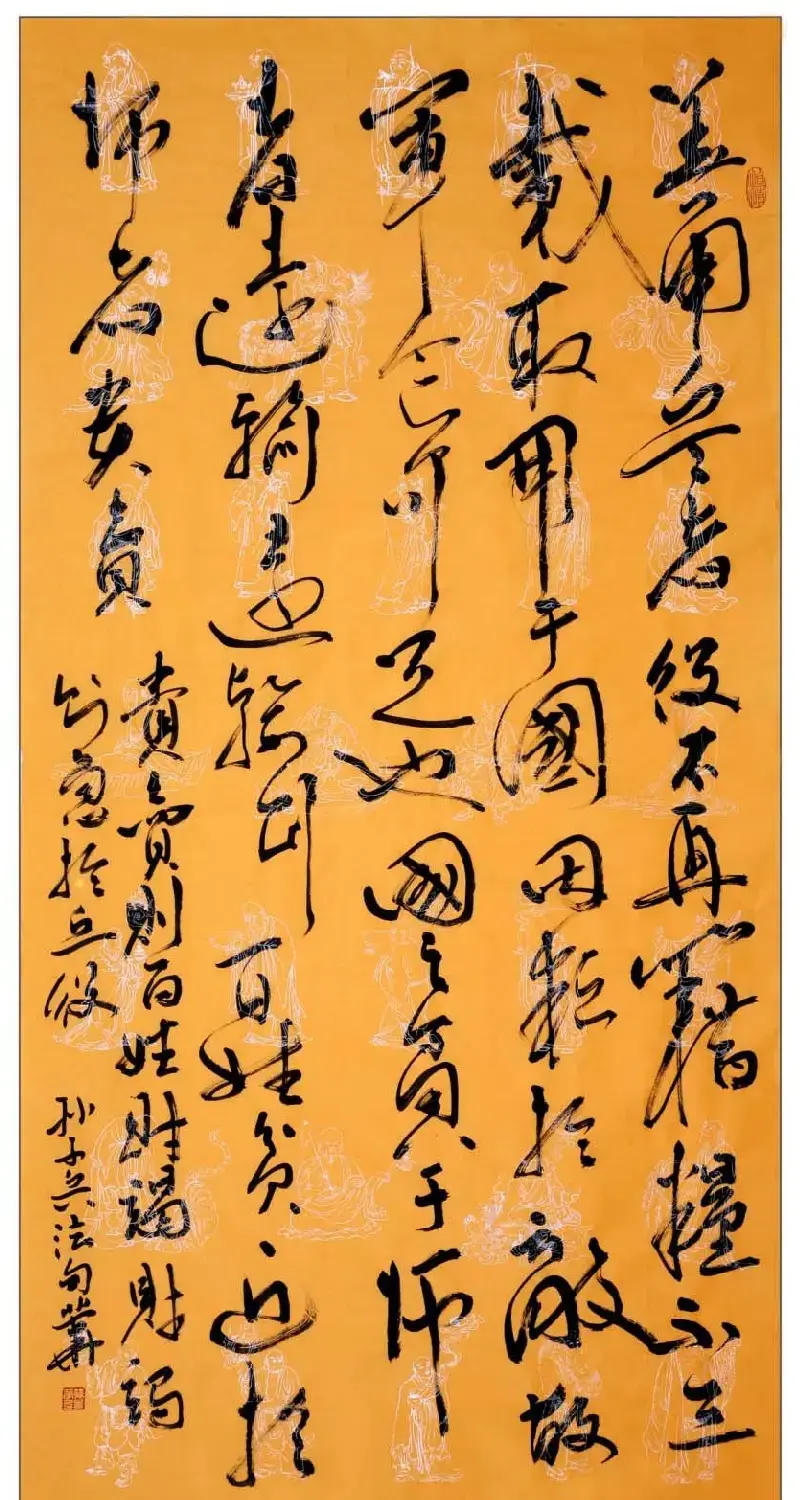 善用兵者役不再籍糧不三
載取用于國因粮於敵故
軍食可足也國之貧于師
者遠輸遠輸則百姓貧近於
師者貴賣
貴賣則百姓財竭財竭
則急於丘役 孫子兵法句